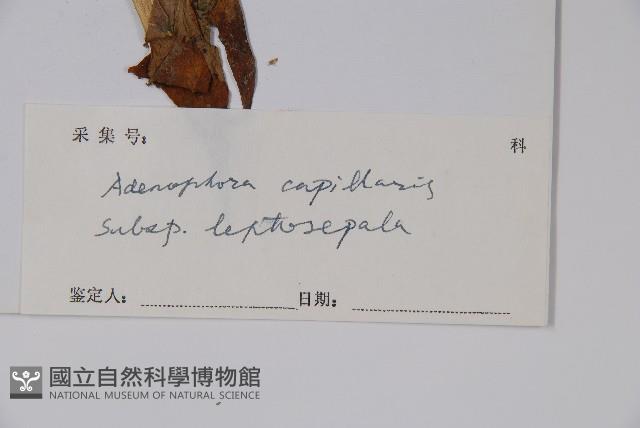 采集号: 科
Adenophora capillaris
Subsp. leptosepala
鉴定人: 日期:
國立自然科學博物館
NATIONAL MUSEUM OF NATURAL SCIENCE